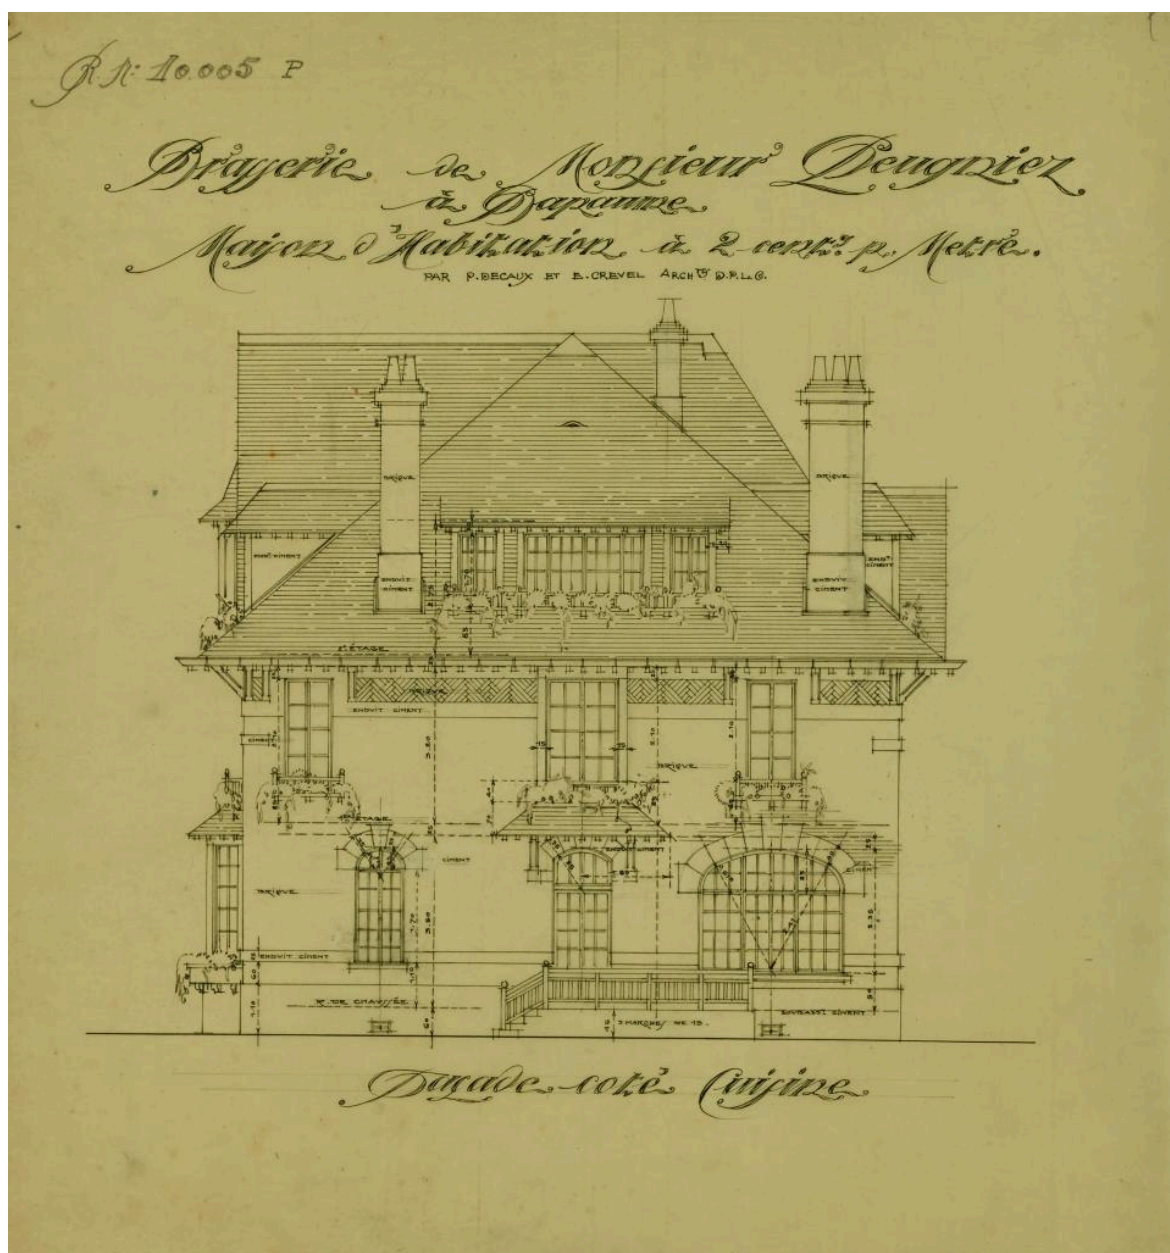 R. N: 10.005 P
Brasserie de Monsieur Peugniez
à Bapaume
Maison d'Habitation à 2 centres p. Metre.
PAR P. DECAUX ET E. CREVEL ARCHTES D.P.L.G.
BRIQUE
BRIQUE
ENDT CIMENT
ENDUIT
CIMENT
ENDUIT
CIMENT
ENDT
CIMENT
2E ÉTAGE
BRIQUE
ENDUIT CIMENT
CIMENT
3.20
2.10
2.10
15
15
BRIQUE
1ER ÉTAGE
ENDUIT CIMENT
CIMENT
CIMENT
BRIQUE
1.70
3.60
2.35
ENDUIT CIMENT
60
1.10
R. DE CHAUSSÉE
60
3 MARCHES DE 15.
SOUBASST CIMENT
Façade coté Cuisine